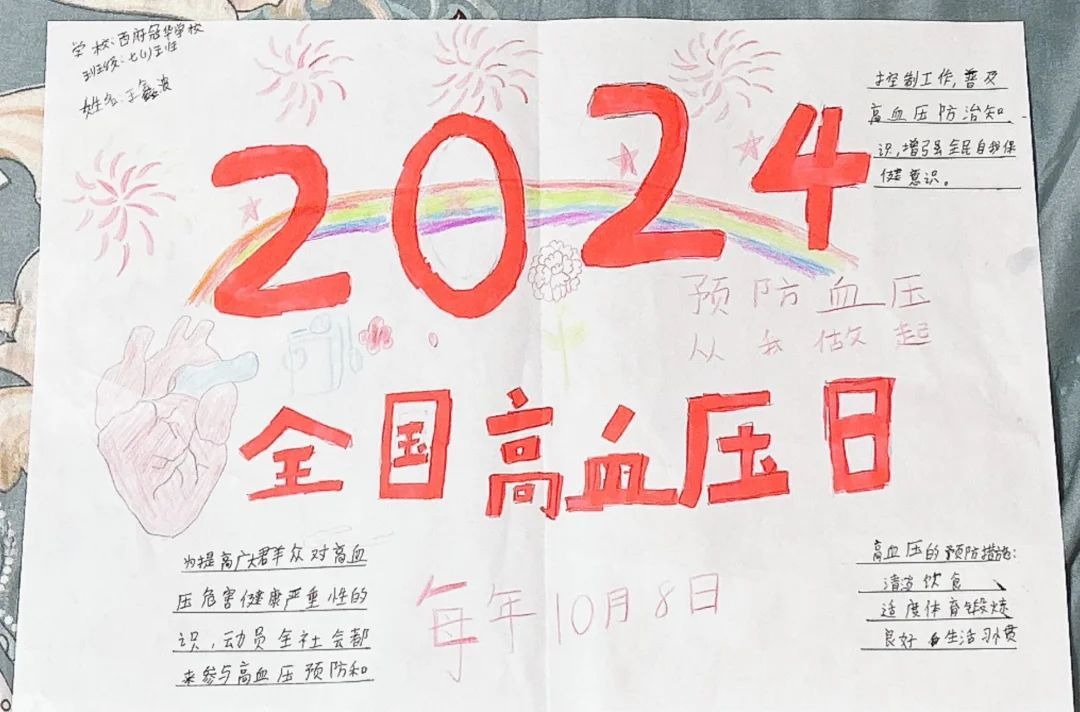 学校:西府冠华学校
班级:七(1)班
姓名:王鑫波
2024
控制工作,普及
高血压防治知
识,增强全民自我保
健意识。
预防血压
从我做起
全国高血压日
为提高广大群众对高血
压危害健康严重性的
识,动员全社会都
来参与高血压预防和
每年10月8日
高血压的预防措施:
清淡饮食
适度体育锻炼
良好的生活习惯